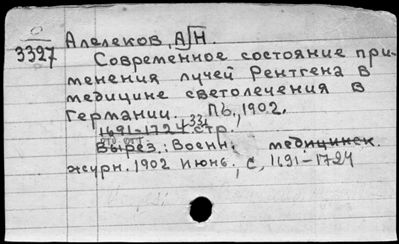 0
3327
Алелеков, А.Н.
Современное состояние при-
менения лучей Рентгена в
медицине светолечения в
Германии. Пб., 1902.
1691-1724 стр.
Вырез.: Военн. медицинск.
журн. 1902 июнь, с. 1691-1724